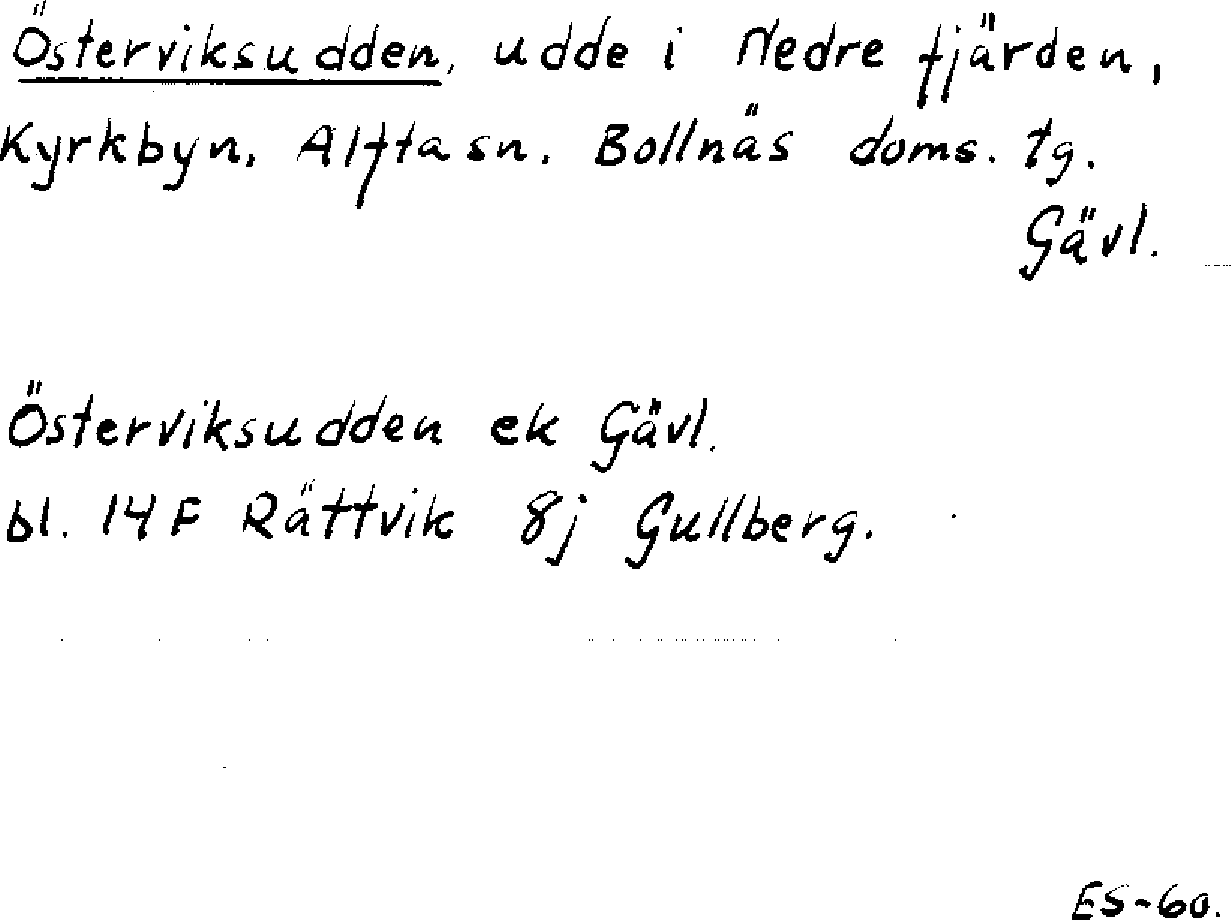 Österviksudden, udde i Nedre fjärden,
Kyrkbyn, Alfta sn. Bollnäs doms. tg.
Gävl.
Österviksudden ek Gävl.
bl. 14 F Rättvik 8j Gullberg.
ES-60.